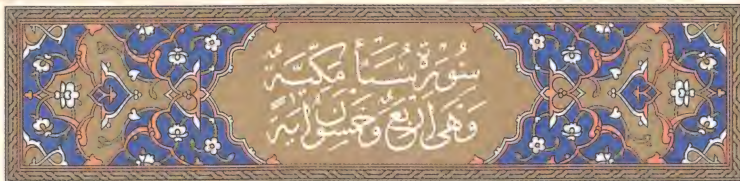 سُورَةُ سَبَأٍ مَكِّيَّةٌ
وَهِيَ أَرْبَعٌ وَخَمْسُونَ آيَةً